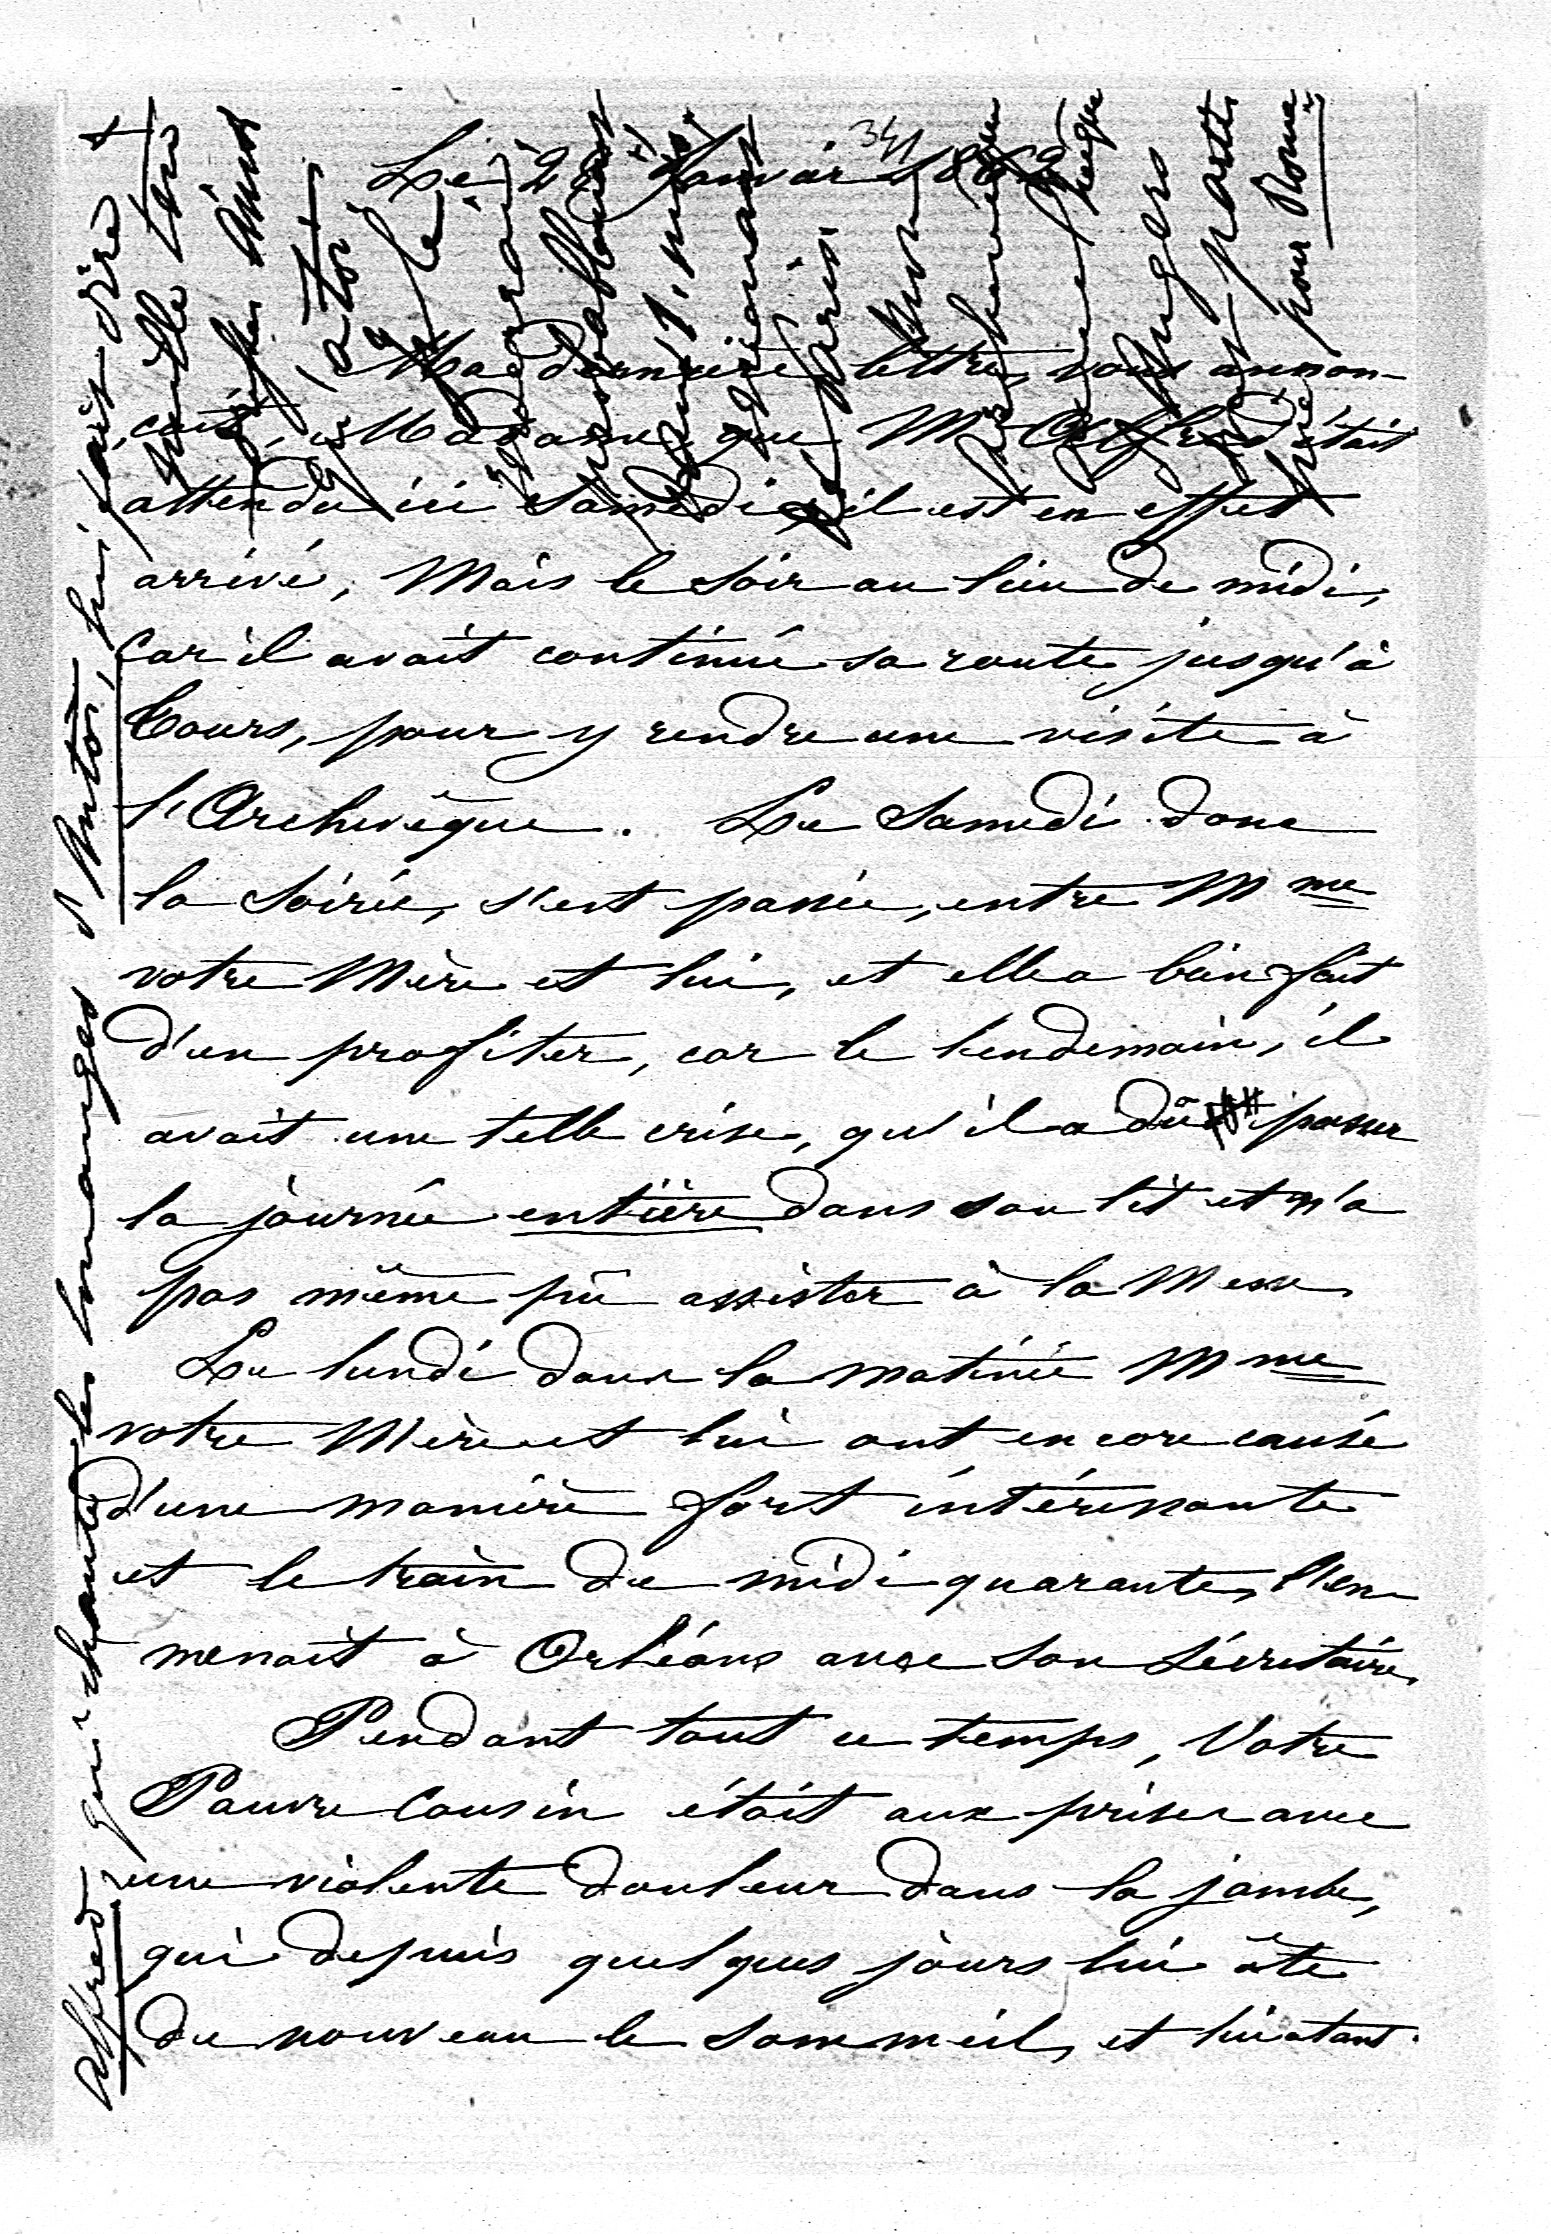 341
Le 29 Janvier 1862
Ma dernière lettre, vous annon-
çait, Madame, que Mr Alfred était
attendu ici Samedi; il est en effet
arrivé, Mais le soir au lieu de midi,
car il avait continué sa route jusqu'à
Tours, pour y rendre une visite à
l'Archevêque. Le Samedi donc
la soirée, s'est passée, entre Mme
votre Mère et lui, et elle a bien fait
d'en profiter, car le lendemain, il
avait une telle crise, qu'il a dû passer
la journée entière dans son lit et n'a
pas même pû assister à la Messe.
Le lundi dans la matinée Mme
votre Mère et lui ont encore causé
d'une manière fort intéressante
et le train de midi quarante, l'em
menait à Orléans avec son Sécrétaire.
Pendant tout ce temps, Votre
Pauvre Cousin était aux prises avec
une violente douleur dans la jambe,
qui depuis quelques jours lui ôte
de nouveau le sommeil, et lui a tant
Alfred, qui chante les louanges d'Antos, lui fait dire
Angers
pour Rome